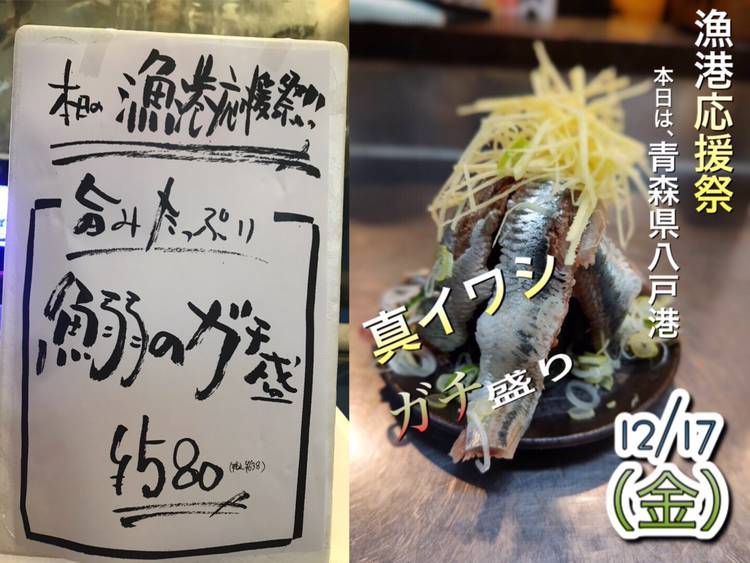 本日の漁港応援祭
旨みたっぷり
鰯のガチ盛
¥580
(税込¥638)
漁港応援祭
本日は、青森県八戸港
真イワシ
ガチ盛り
12/17
(金)